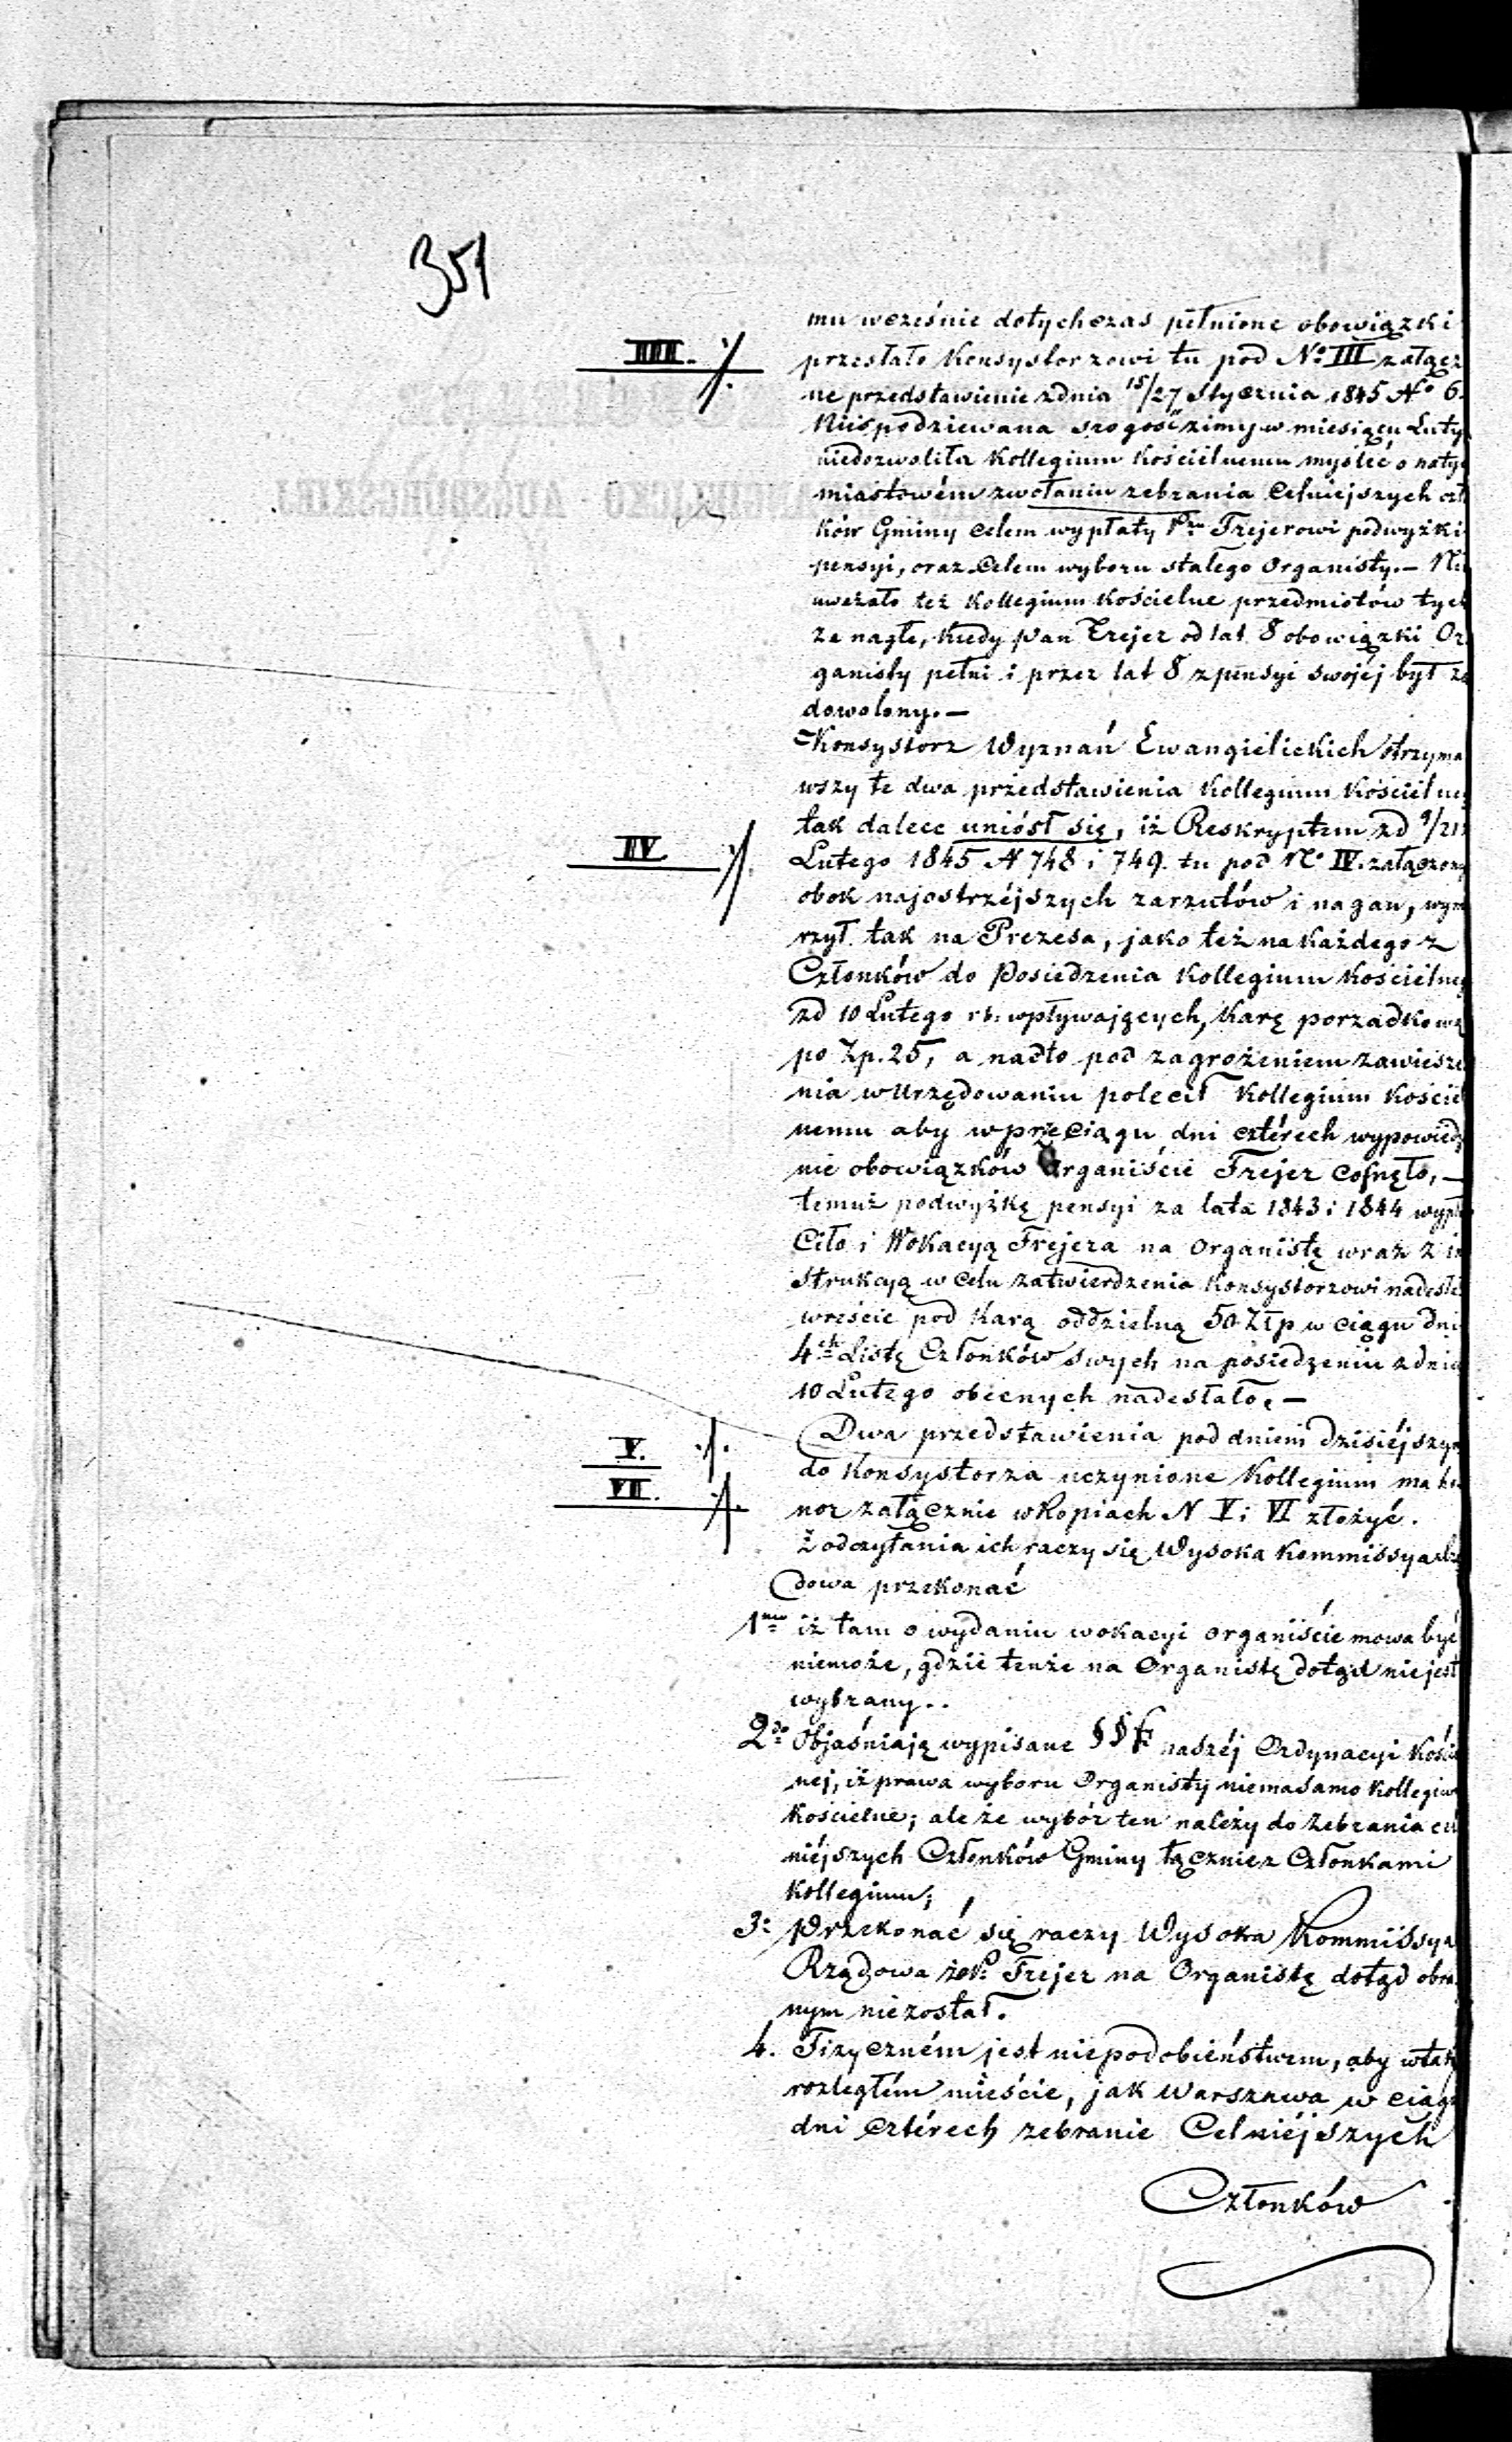 351
mu wcześnie dotychczas pełnione obowiązki
III. ·/.
przesłało Konsystorzowi tu pod No III załącz
ne przedstawienie zdnia 15/27 Stycznia 1845 No 6.
Niespodziewana srogość zimy w miesiącu Luty
niedozwoliła Kollegium Kościelnemu myśleć o natyc
miastowém zwołaniu zebrania Celniejszych czł
ków Gminy celem wypłaty Pnu Frejerowi podwyżki
pensyi, oraz celem wyboru stałego Organisty. — Ni
uważało też Kollegium Kościelne przedmiotów tych
za nagłe, kiedy Pan Frejer od lat 8 obowiązki Or
ganisty pełni i przez lat 8 z pensyi swojéj był za
dowolony. —
Konsystorz Wyznań Ewangielickich otrzyma
wszy te dwa przedstawienia Kollegium Kościelneg
tak dalece uniósł się, iż Reskryptem zd 9/21
IV. ·/.
Lutego 1845 N 748 i 749. tu pod No IV. załączony
obok najostrzéjszych zarzutów i nagan, wym
rzył tak na Prezesa, jako też na każdego z
Członków do Posiedzenia Kollegium Kościelneg
zd 10 Lutego rb: wpływających, karę porządkową
po Zp. 25, a nadto pod zagrożeniem zawiesze
nia w Urzędowaniu polecił Kollegium Kościel
nemu aby w przeciągu dni cztérech wypowiedz
nie obowiązków Organiście Frejer cofnęło, —
temuż podwyżkę pensyi za lata 1843 i 1844 wypła
ciło i Wokacyą Frejera na Organistę wraz z in
strukcyą w celu zatwierdzenia Konsystorzowi nadesła
wreście pod karą oddzielną 50 Złp w ciągu dni
4ch Listę Członków swych na posiedzeniu zdnia
10 Lutego obecnych nadesłało. —
V. ·/.
Dwa przedstawienia pod dniem dzisiéjszym
VI. ·/.
do Konsystorza uczynione Kollegium ma ho
nor załącznie w Kopiach N V i VI złożyć.
Z odczytania ich raczy się Wysoka Kommissya Rzą
dowa przekonać
1mo iż tam o wydaniu wokacyi organiście mowa być
niemoże, gdzie tenże na Organistę dotąd nie jest
wybrany..
2do Objaśniają wypisane §§fy naszéj Ordynacyi Kościel
nej, iż prawa wyboru Organisty niema samo Kollegium
Kościelne; ale że wybór ten należy do zebrania cel
niéjszych Członków Gminy łącznie z Członkami
Kollegium;
3: Przekonać się raczy Wysoka Kommissya
Rządowa że P. Frejer na Organistę dotąd obra
nym nie został.
4. Fizyczném jest niepodobieństwem, aby w tak
rozległém mieście, jak Warszawa w ciągu
dni cztérech zebranie Celniéjszych
Członków